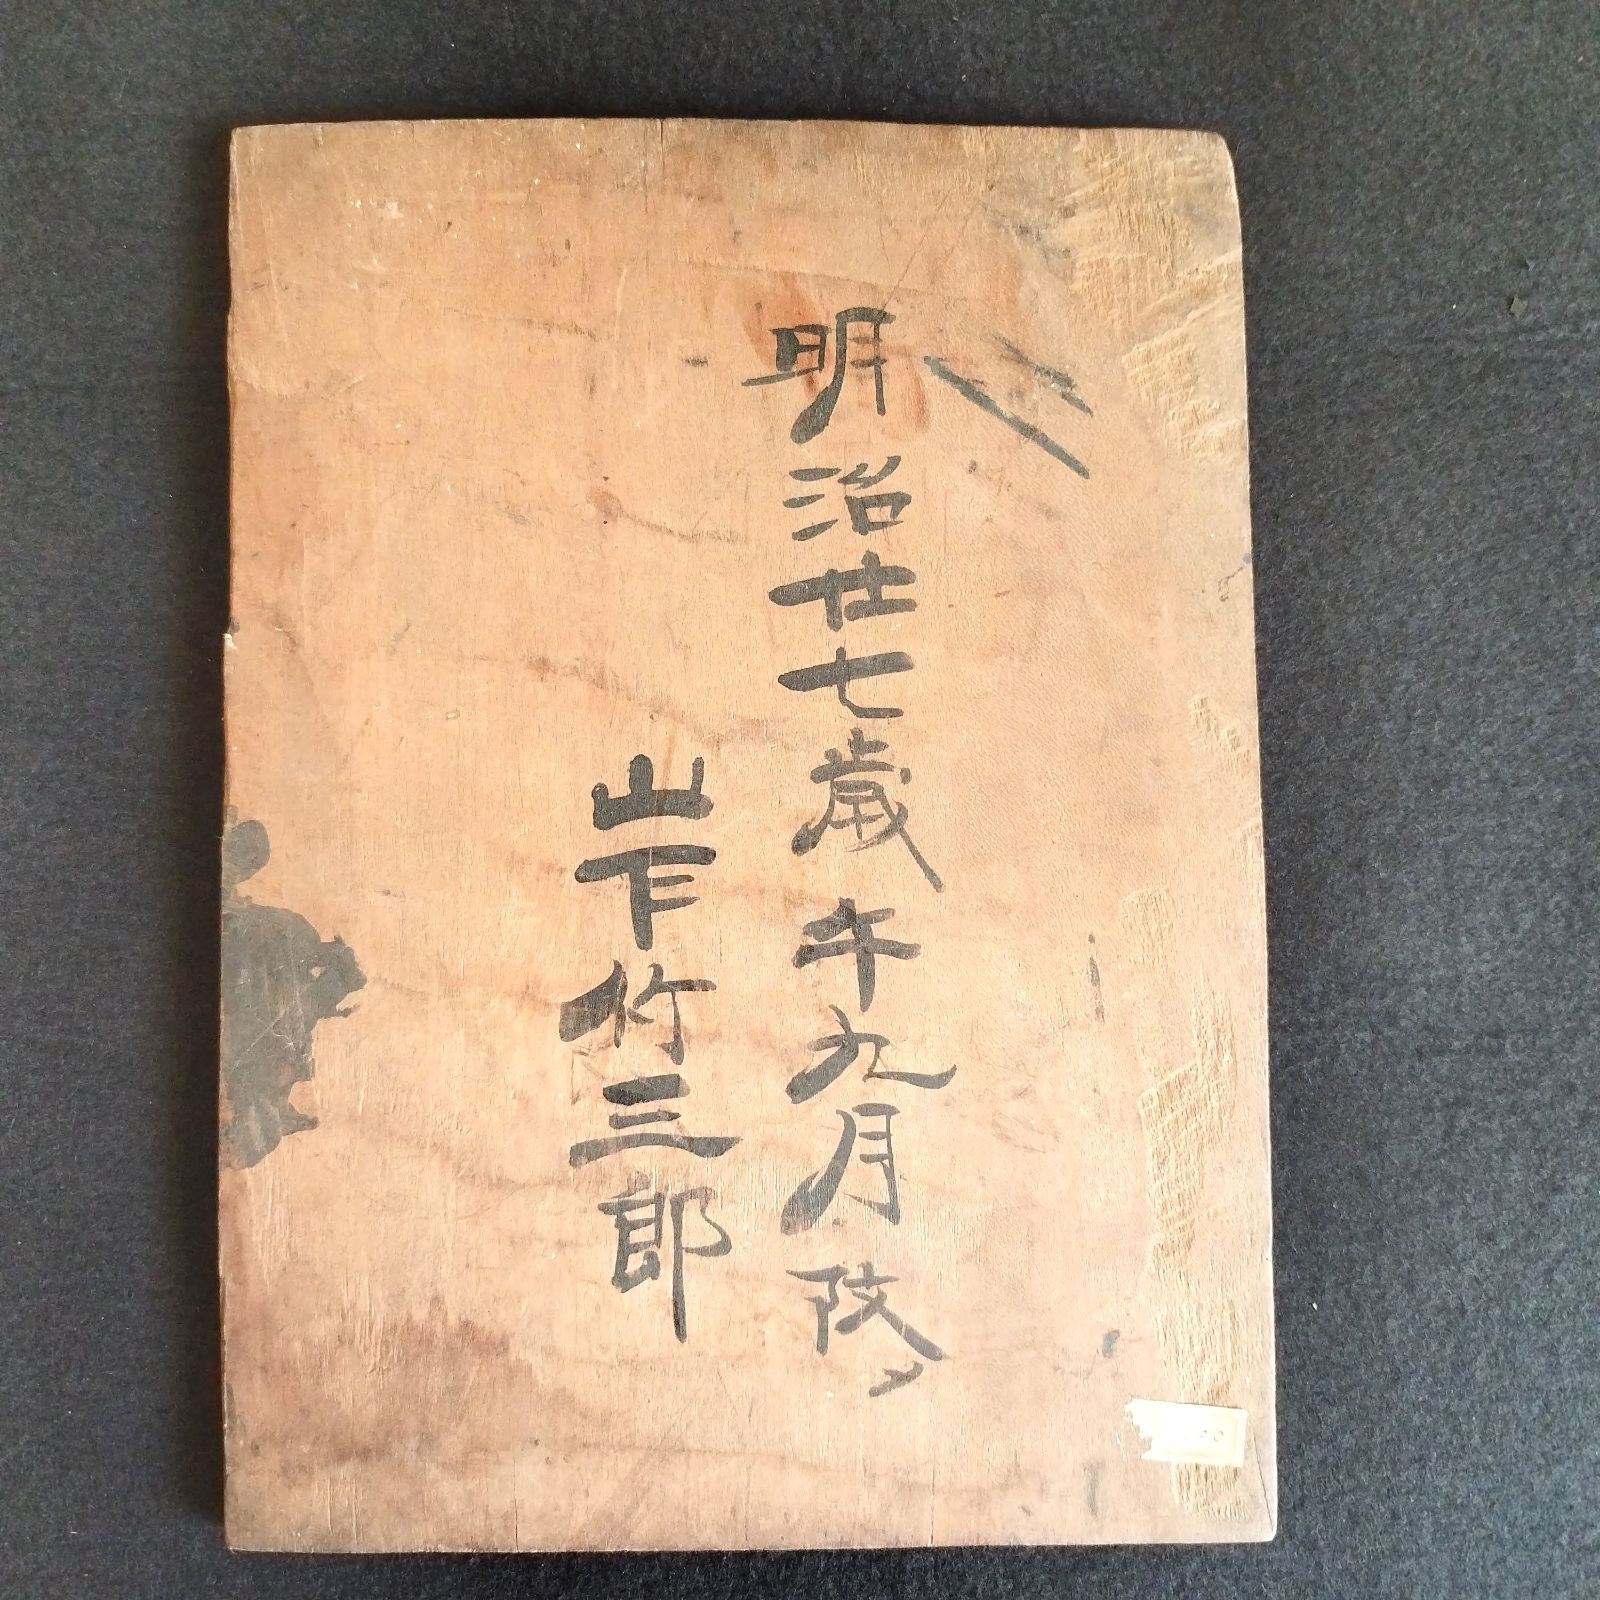 明治廿七歳午九月改
山下竹三郎